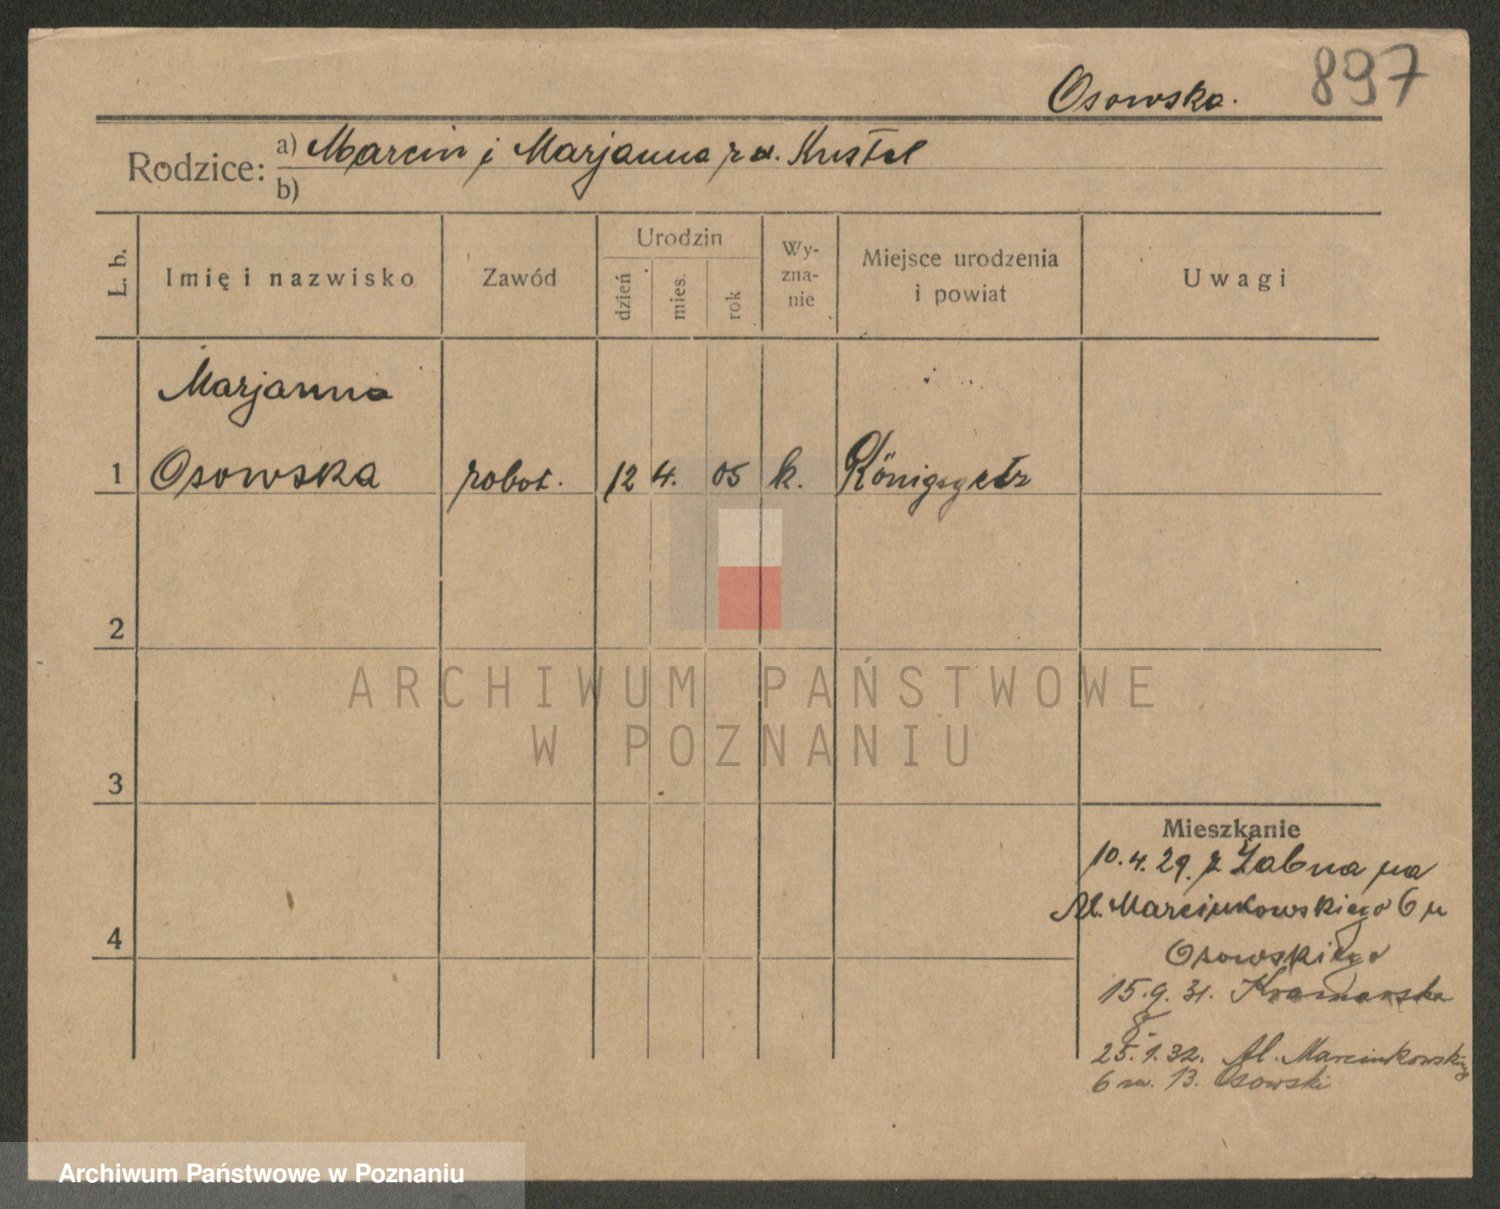 897
Osowska.
Rodzice: a) Marcin i Marjanna z d. Kustel
b)
L. b.
Imię i nazwisko
Zawód
Urodzin
dzień
mies.
rok
Wy-
zna-
nie
Miejsce urodzenia
i powiat
Uwagi
Marjanna
1 Osowska robot. 12 4. 05 k. Königsgetz
2
3
4
Mieszkanie
10.4.29. z Żabna na
Al. Marcinkowskiego 6 u
Osowskiego
15.9.31. Kramarska
8.
25.1.32. Al. Marcinkowskiego
6 m. 13. Osowski
ARCHIWUM PAŃSTWOWE
W POZNANIU
Archiwum Państwowe w Poznaniu